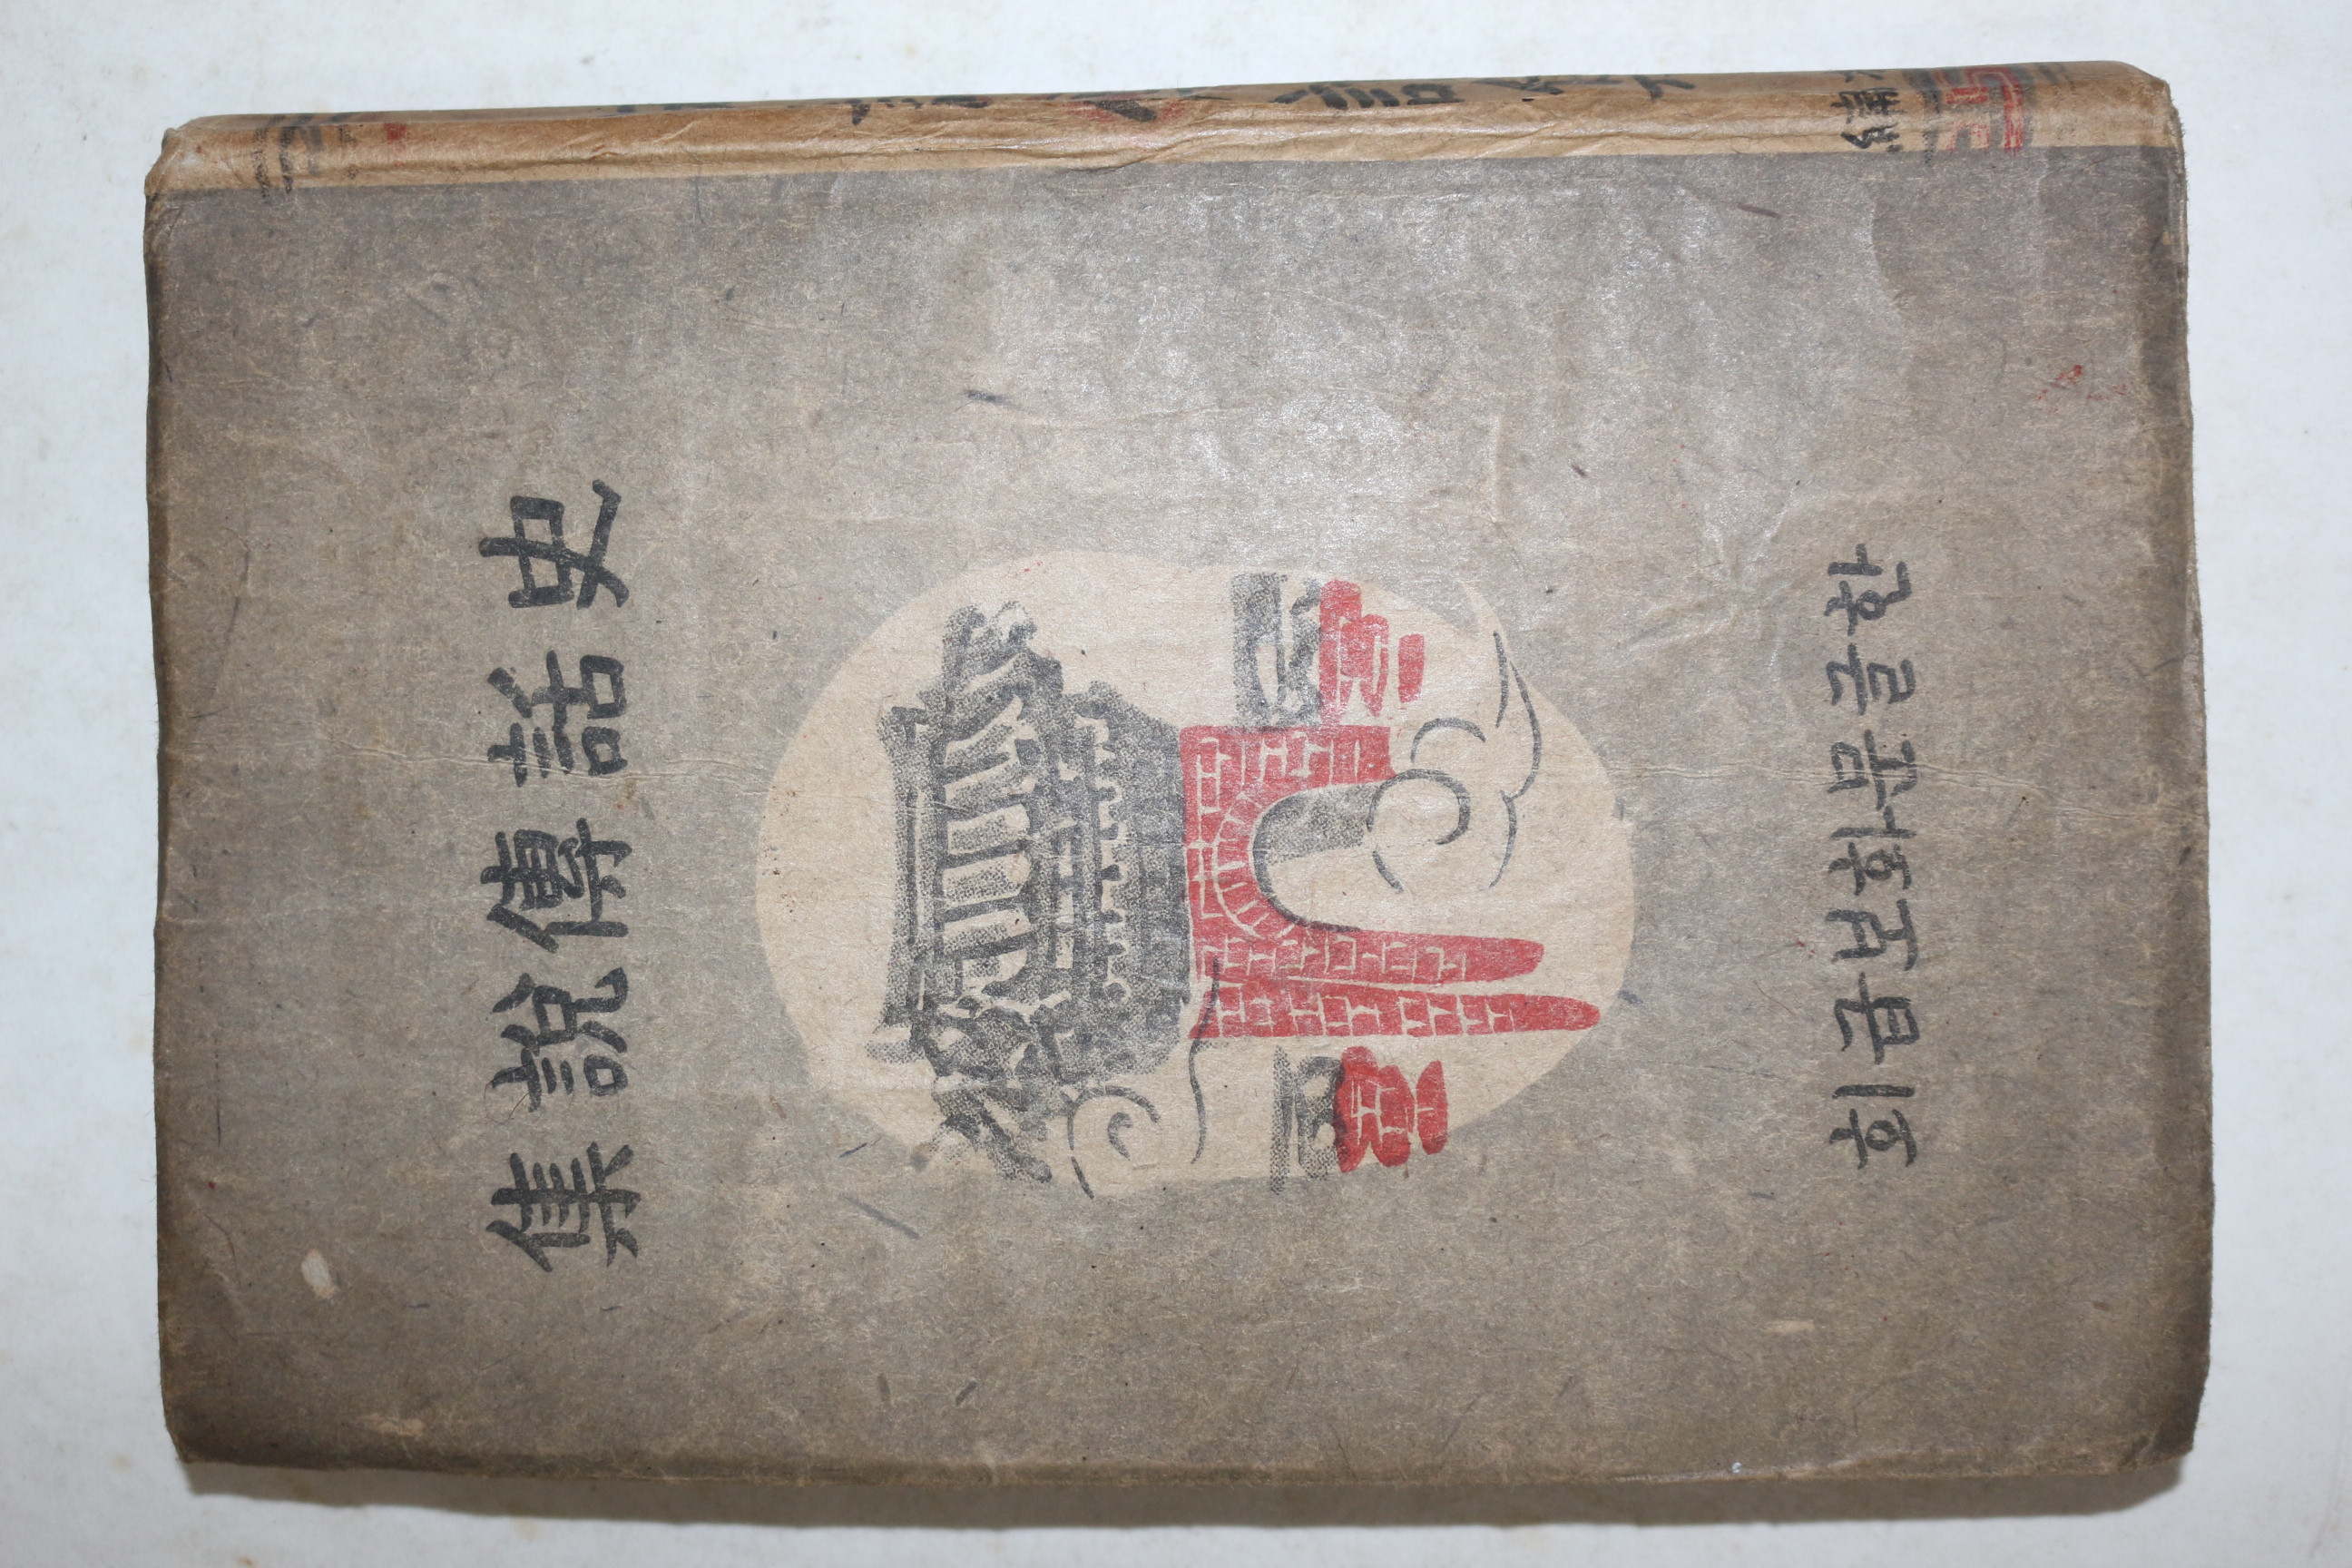 史話傳說集
한글문화보급회
編